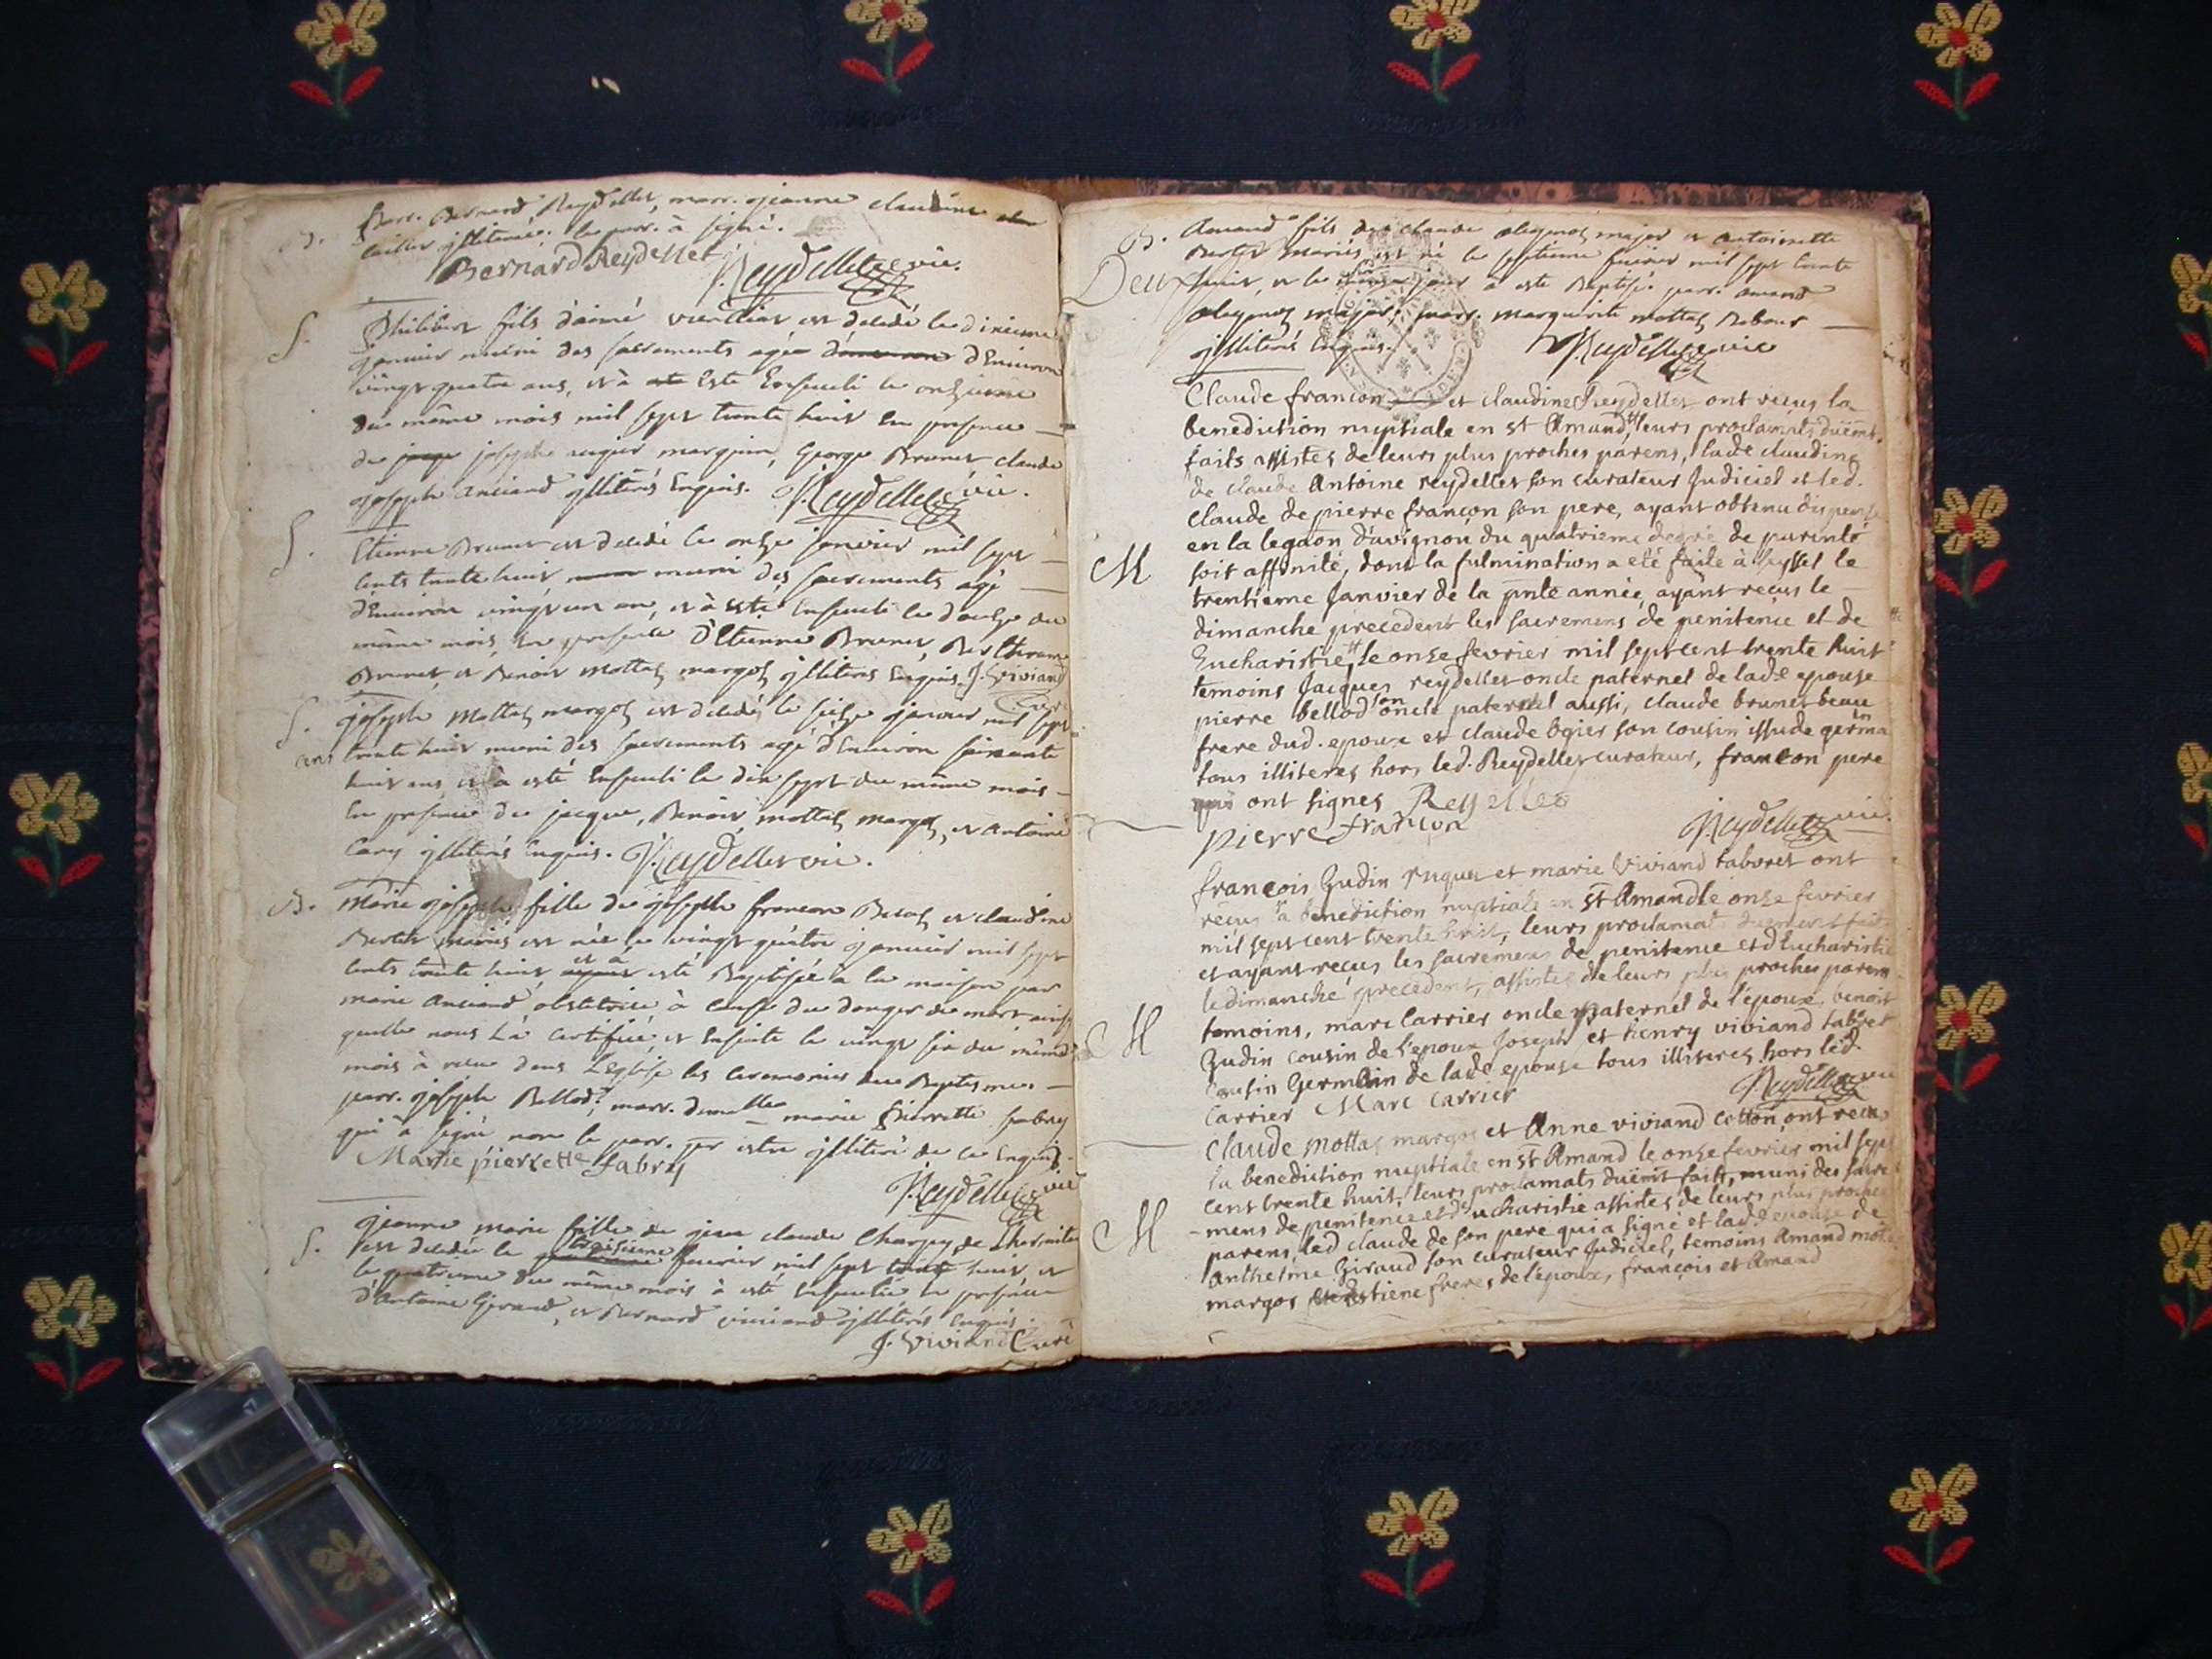 B. parr. Bernard Reydellet, marr. jeanne claudine
illiterée. le parr. à signé.
Bernard Reydellet J. Reydellet vic.
S. Philibert fils d'aimé est décédé le dixieme
janvier muni des sacrements agé d'Environ
vingt quatre ans, et à Esté Enseveli le onzieme
du même mois mil sept trente huit En presence
de joseph marquin, George Brunet claude
joseph anciand illiterés Enquis. J. Reydellet vic.
S. Etienne Brunet est décédé le onze janvier mil sept
cents trente huit muni des sacrements agé
d'Environ vingt un an, et à esté Enseveli le douze du
même mois, En presence d'Etienne Brunet, Berthramd
Brunet, et Benoit mottaz margoz illiteres Enquis. J. Viviand
Curé
S. joseph mottaz margoz est décédé le seize janvier mil sept
cent trente huit muni des sacrements agé d'Environ soixante
huit ans, et à esté Enseveli le dix sept du même mois
En presence de jacque, Benoit mottaz margoz, et antoine
Cary illiterés Enquis. J. Reydellet vic.
B. Marie joseph fille de joseph francon Beloz et claudine
Bertet mariés est née le vingt quatre janvier mil sept
cents trente huit et a esté Baptisée à la maison par
marie anciand obstetrice à cause du danger de mort ainsi
quelle nous la certifié, et Ensuite le vingt six du même
mois à receu dans L'eglise les ceremonies du Baptesme
parr. joseph Bellod, marr. dmelle marie pierrette fabry
qui à signé non le parr. pr estre illiteré de ce Enquis.
Marie pierrette fabry
J. Reydellet vic
S. jeanne marie fille de jean claude Charpy de
est décédée le troisieme fevrier mil sept trente huit, et
le quatrieme du même mois à esté Ensevelie En presence
d'Antoine Giraud, et Bernard viviand illiterés Enquis.
J. Viviand Curé
B. Amand fils de claude major et antoinette
Bertet mariés est né le septieme fevrier mil sept trente
huit, et le jour a esté Baptisé parr. amand
major, marr. marguerite mottaz
illiterés Enquis. J. Reydellet vic
Claude francon et claudine Reydellet ont reçus la
benediction nuptiale en st Amand, leurs proclamats duëmt.
faits assistes de leurs plus proches parens, lade claudine
de claude Antoine reydellet son curateur Judiciel et led.
claude de pierre françon son pere, ayant obtenu dispense
en la legaon d'avignon du quatrieme degré de parenté
M soit affinité, dont la fulmination a eté faite à Seyssel le
trentieme Janvier de la pnte année, ayant reçus le
dimanche precedent les sacremens de penitence et de
Eucharistie, le onse fevrier mil sept cent trente huit
temoins Jacques reydellet oncle paternel de lade epouse
pierre bellod son oncle paternel aussi, claude brunet beau
frere dud. epoux et claude Ogier son cousin issu de germain
tous illiteres hors led. Reydellet curateur, francon pere
qui ont signes Reydellet
pierre françon J. Reydellet vic.
françois Zudin ruquet et marie Viviand taboret ont
reçus la benediction nuptiale en st Amand le onse fevrier
mil sept cent trente huit, leurs proclamats duement faits
et ayant reçus les sacremens de penitence et d'Eucharistie
le dimanche precedent, assistes de leurs plus proches parens
M temoins, marc Carrier oncle paternel de l'époux, benoit
Zudin cousin de l'epoux Joseph et henry viviand taboret
cousin Germain de lade epouse tous illiteres hors led.
Carrier Marc Carrier J. Reydellet vic
Claude Mottaz margos et Anne viviand cotton, ont reçu
la benediction nuptiale en st Amand le onse fevrier mil sept
cent trente huit, leurs proclamats duëmt faits, munis des sacre
M -mens de penitence et d'Eucharistie assistes de leurs plus proches
parens, led claude de son pere qui a signé et lade epouse de
anthelme Giraud son curateur Judiciel, temoins Amand mottaz
margos et estiene freres de l'époux, françois et Amand